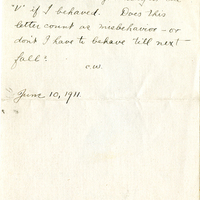 "V" if I behaved. Does this
letter count as misbehavior – or
don't I have to behave 'till next
fall?
C.W.
June 10, 1911.